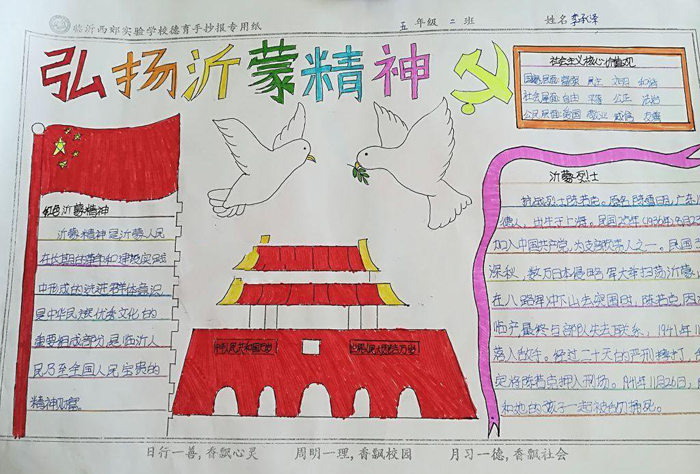 临沂西郊实验学校德育手抄报专用纸
五 年级 二 班
姓名 李
弘扬沂蒙精神
社会主义核心价值观
国家层面 富强 民主 文明 和谐
社会层面 自由 平等 公正 法治
公民层面 爱国 敬业 诚信 友善
红色沂蒙精神
沂蒙精神是沂蒙人民
在长期的革命和建设实践
中形成的先进群体意识
是中华民族优秀文化的
重要组成部分,是临沂人
民乃至全国人民宝贵的
精神财富
中华人民共和国万岁
世界人民大团结万岁
沂蒙烈士
抗战烈士陈若克。原名陈雪明,广东
德人,出生于上海。民国25年(1936年)8月
加入中国共产党,为支部负责人之一。民国三
深秋,数万日本侵略军大举扫荡沂蒙
在八路军 突围时,陈若克因
临产最终与部队失去联系,1941年11
落入敌手。经过二十天的严刑拷打,
突将陈若克押入刑场。1941年11月26日,
和她的孩子一起被 刺死。
日行一善,香飘心灵 周明一理,香飘校园 月习一德,香飘社会